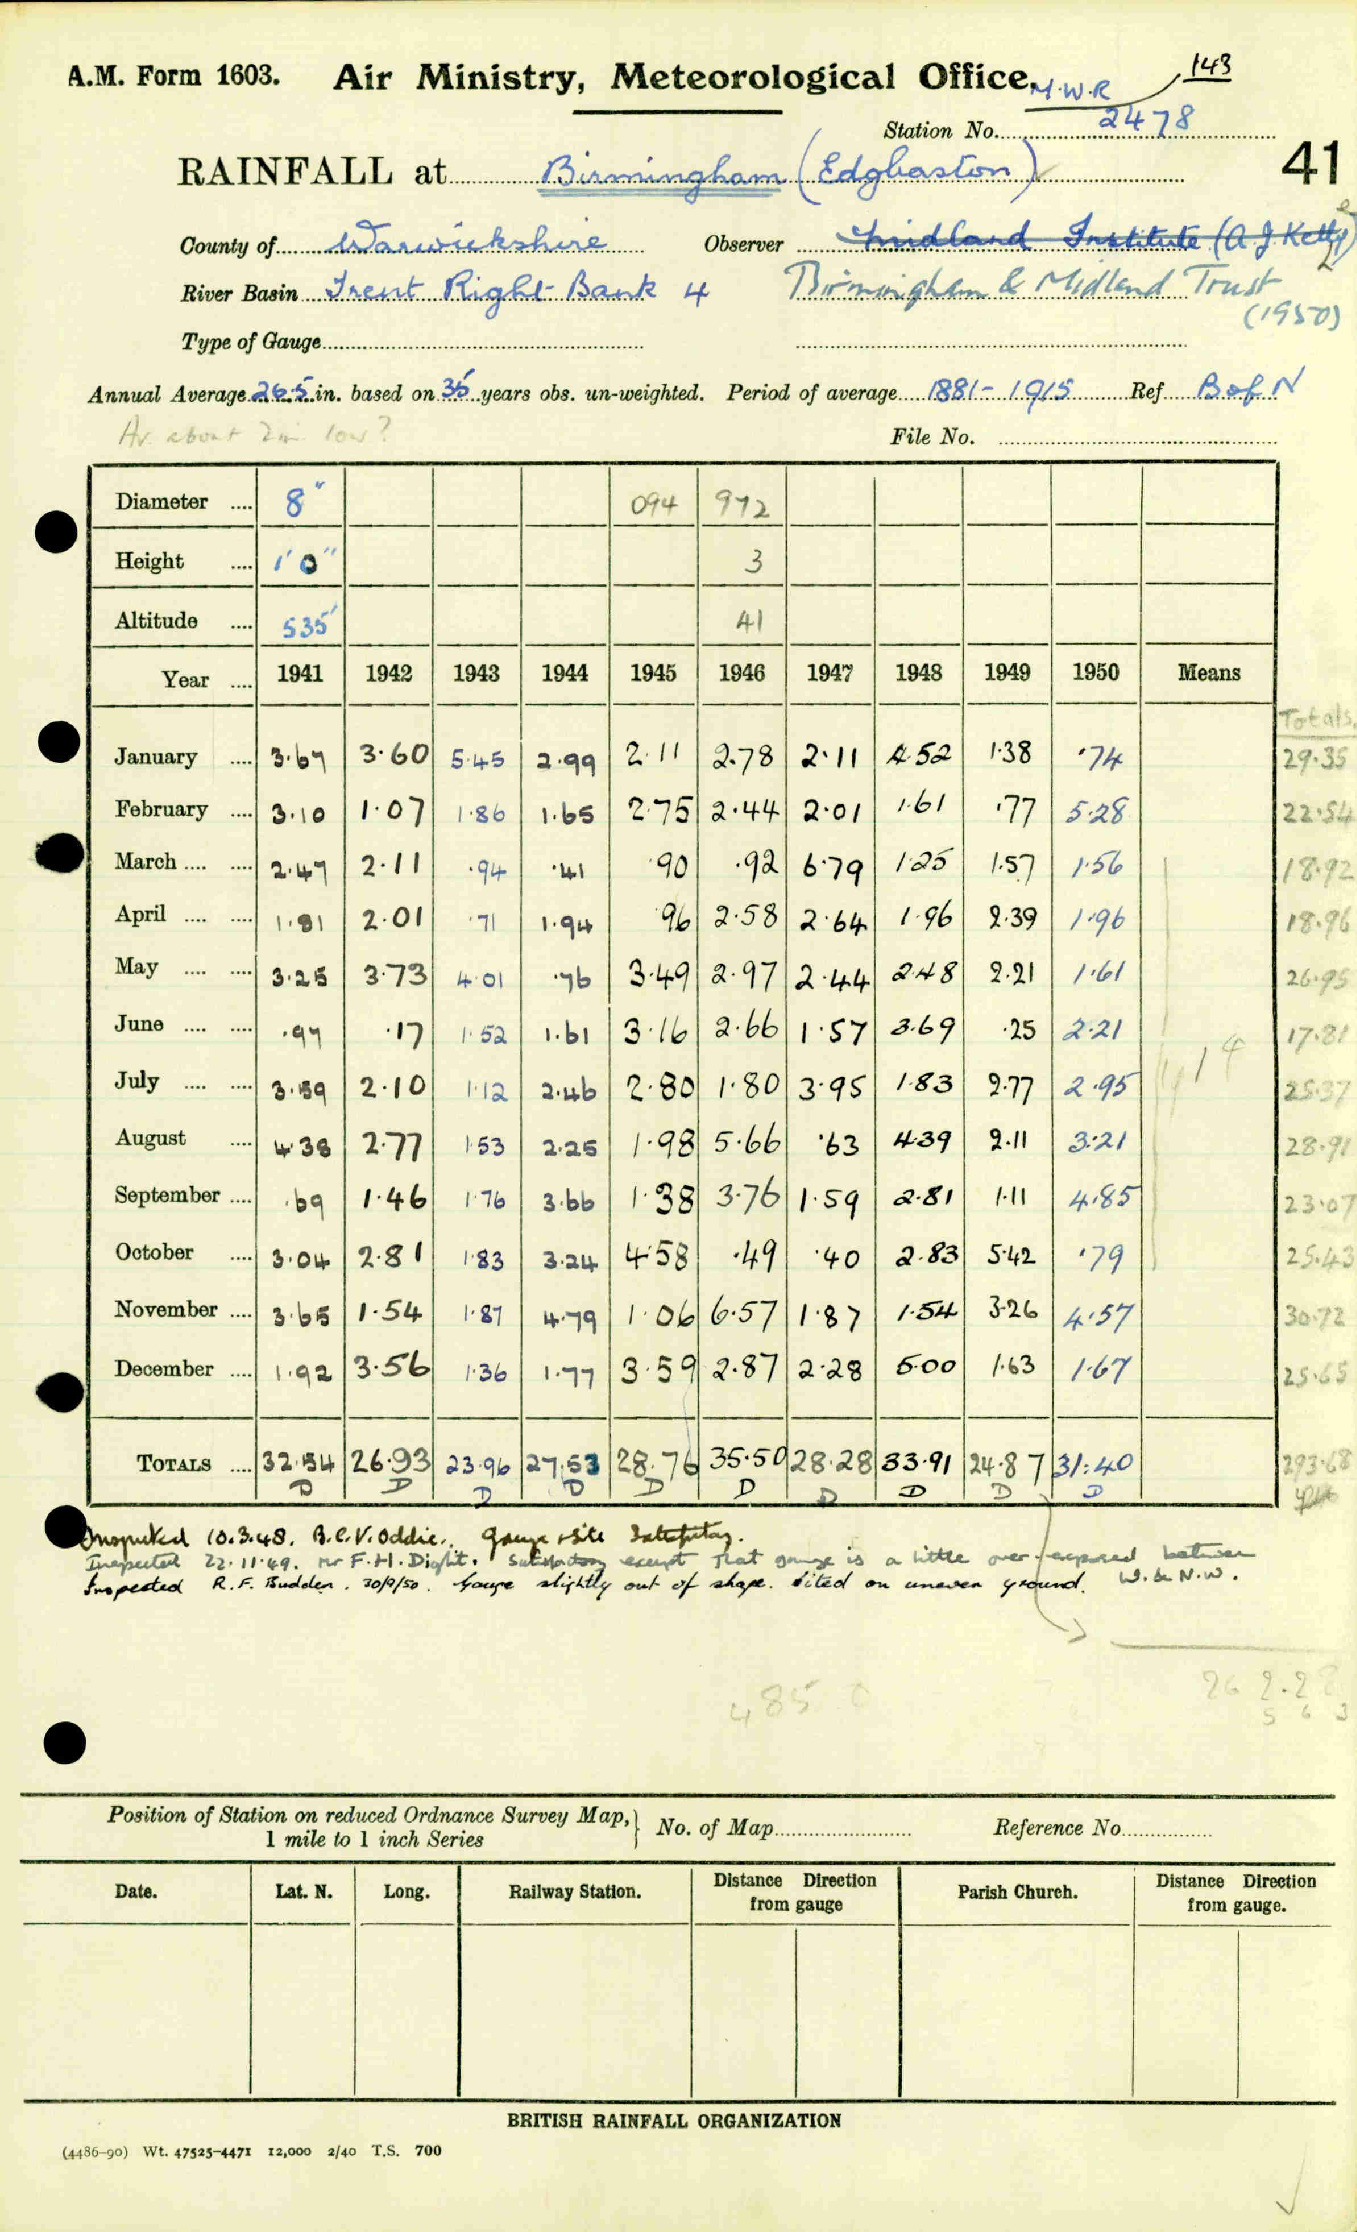 A.M. Form 1603. Air Ministry, Meteorological Office. M.W.R 143
Station No. 2478
RAINFALL at Birmingham (Edgbaston) 41
County of Warwickshire Observer Midland Institute (A J Kelley)
River Basin Trent Right Bank 4 Birmingham & Midland Trust
(1950)
Type of Gauge
Annual Average 26.5 in. based on 35 years obs. un-weighted. Period of average 1881-1915 Ref B of N
Av. about 2 in low?
File No.
Diameter .... 8" 094 972
Height .... 1'0" 3
Altitude .... 535' 41
Year .... 1941 1942 1943 1944 1945 1946 1947 1948 1949 1950 Means
Totals
January .... 3.67 3.60 5.45 2.99 2.11 2.78 2.11 4.52 1.38 .74 29.35
February .... 3.10 1.07 1.86 1.65 2.75 2.44 2.01 1.61 .77 5.28 22.54
March .... .... 2.47 2.11 .94 .41 .90 .92 6.79 1.25 1.57 1.56 18.92
April .... .... 1.81 2.01 .71 1.94 .96 2.58 2.64 1.96 2.39 1.96 18.96
May .... .... 3.25 3.73 4.01 .76 3.49 2.97 2.44 2.48 2.21 1.61 26.95
June .... .... .97 .17 1.52 1.61 3.16 2.66 1.57 3.69 .25 2.21 17.81
July .... .... 3.59 2.10 1.12 2.46 2.80 1.80 3.95 1.83 2.77 2.95 25.37
August .... 4.38 2.77 1.53 2.25 1.98 5.66 .63 4.39 2.11 3.21 28.91
September .... .69 1.46 1.76 3.66 1.38 3.76 1.59 2.81 1.11 4.85 23.07
October .... 3.04 2.81 1.83 3.24 4.58 .49 .40 2.83 5.42 .79 25.43
November .... 3.65 1.54 1.87 4.79 1.06 6.57 1.87 1.54 3.26 4.57 30.72
December .... 1.92 3.56 1.36 1.77 3.59 2.87 2.28 5.00 1.63 1.67 25.65
TOTALS .... 32.54 26.93 23.96 27.53 28.76 35.50 28.28 33.91 24.87 31.40 293.68
D D D D D D D D D D
Inspected 10.3.48. B.C.V. Oddie. Gauge & site satisfactory.
Inspected 22.11.49. Mr F.H. Dight. Satisfactory except that gauge is a little over-exposed between
Inspected R.F. Budden. 30/9/50. Gauge slightly out of shape. Sited on uneven ground. W. & N.W.
485 0
Position of Station on reduced Ordnance Survey Map,
1 mile to 1 inch Series
No. of Map Reference No.
Date. Lat. N. Long. Railway Station. Distance from gauge Direction Parish Church. Distance from gauge. Direction
BRITISH RAINFALL ORGANIZATION
(4486-90) Wt. 47525-4471 12,000 2/40 T.S. 700